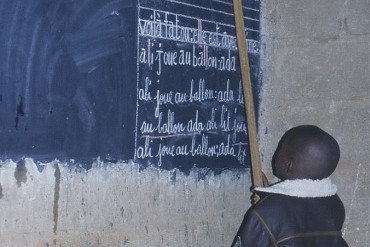 voilà fatou: elle est
ali joue au ballon: ada
ali joue au ballon: ada
au ballon ada ali lit
ali joue au ballon: ada